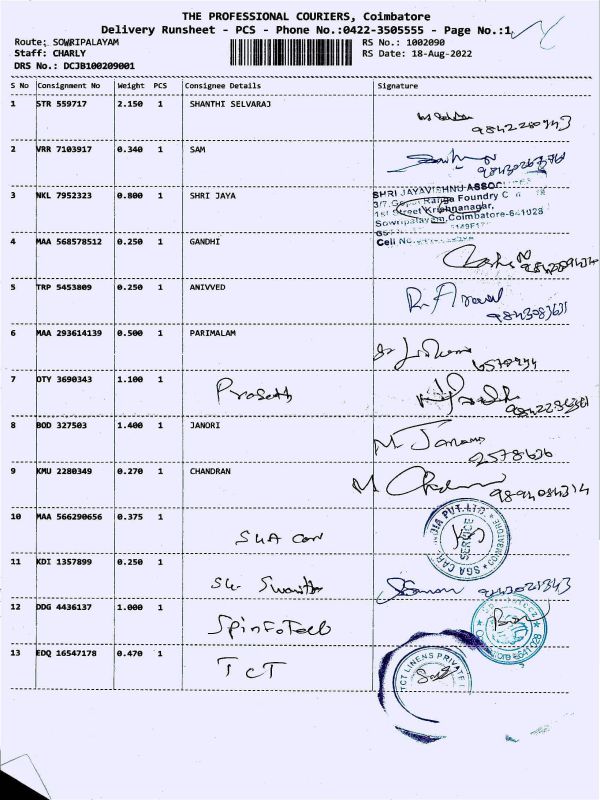 THE PROFESSIONAL COURIERS, Coimbatore
Delivery Runsheet - PCS - Phone No.:0422-3505555 - Page No.:1
Route: SOWRIPALAYAM RS No.: 1002090
Staff: CHARLY RS Date: 18-Aug-2022
DRS No.: DCJB100209001
S No Consignment No Weight PCS Consignee Details Signature
1 STR 559717 2.150 1 SHANTHI SELVARAJ
9842280943
2 VRR 7103917 0.340 1 SAM
3 NKL 7952323 0.800 1 SHRI JAYA
SHRI JAYAVISHNU ASSOC
3/7, Gopal Ranga Foundry C
1st Street Krishnanagar,
Sowripalayam, Coimbatore-641028
Cell No.
4 MAA 568578512 0.250 1 GANDHI
5 TRP 5453809 0.250 1 ANIVVED
9843083631
6 MAA 293614139 0.500 1 PARIMALAM
7 OTY 3690343 1.100 1 Praseth
8 BOD 327503 1.400 1 JANORI
M Janano
2578636
9 KMU 2280349 0.270 1 CHANDRAN
9894084314
10 MAA 566290656 0.375 1 SGA Car
SGA CAR INDIA PVT.LTD. COIMBATORE
SERVICE
11 KDI 1357899 0.250 1
12 DDG 4436137 1.000 1 Spinfotech
641028
13 EDQ 16547178 0.470 1 TCT
TCT LINENS PRIVATE